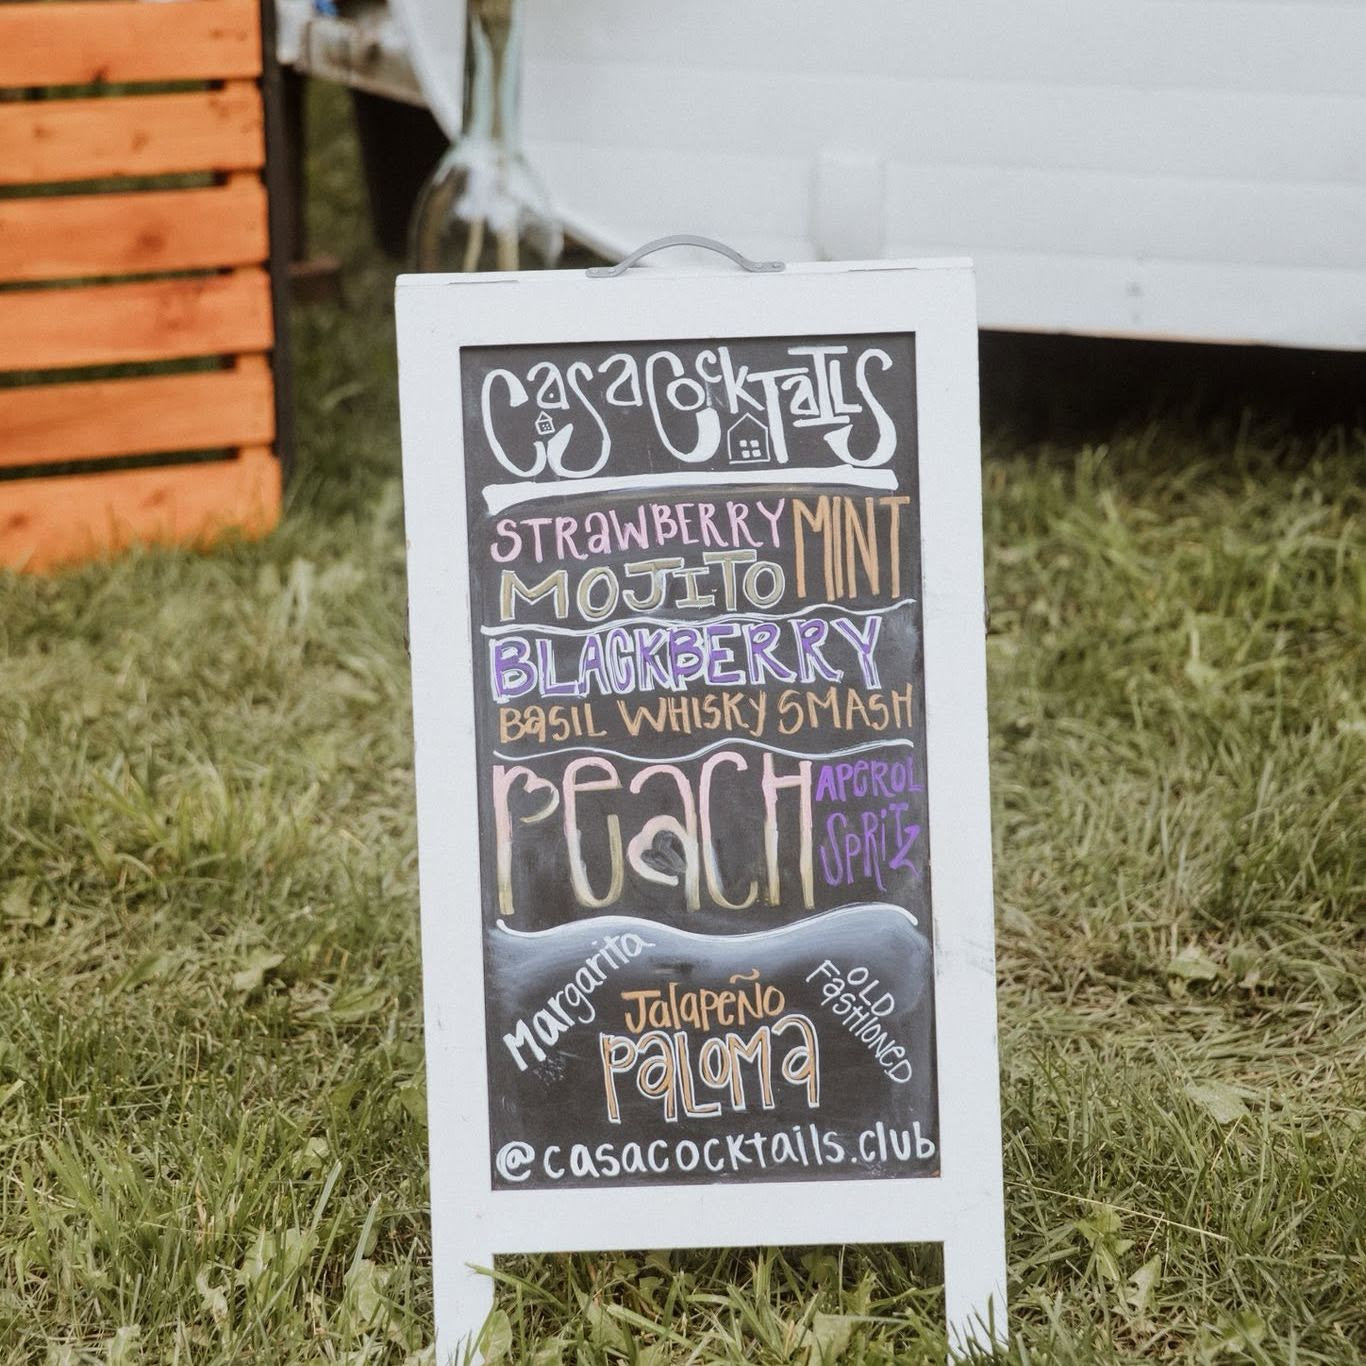 CasaCocktails
STRAWBERRY MINT
MOJITO
BLACKBERRY
BASIL WHISKY SMASH
PEACH APEROL
SPRITZ
Margarita
JALAPEÑO
PALOMA
OLD
FASHIONED
@casacocktails.club